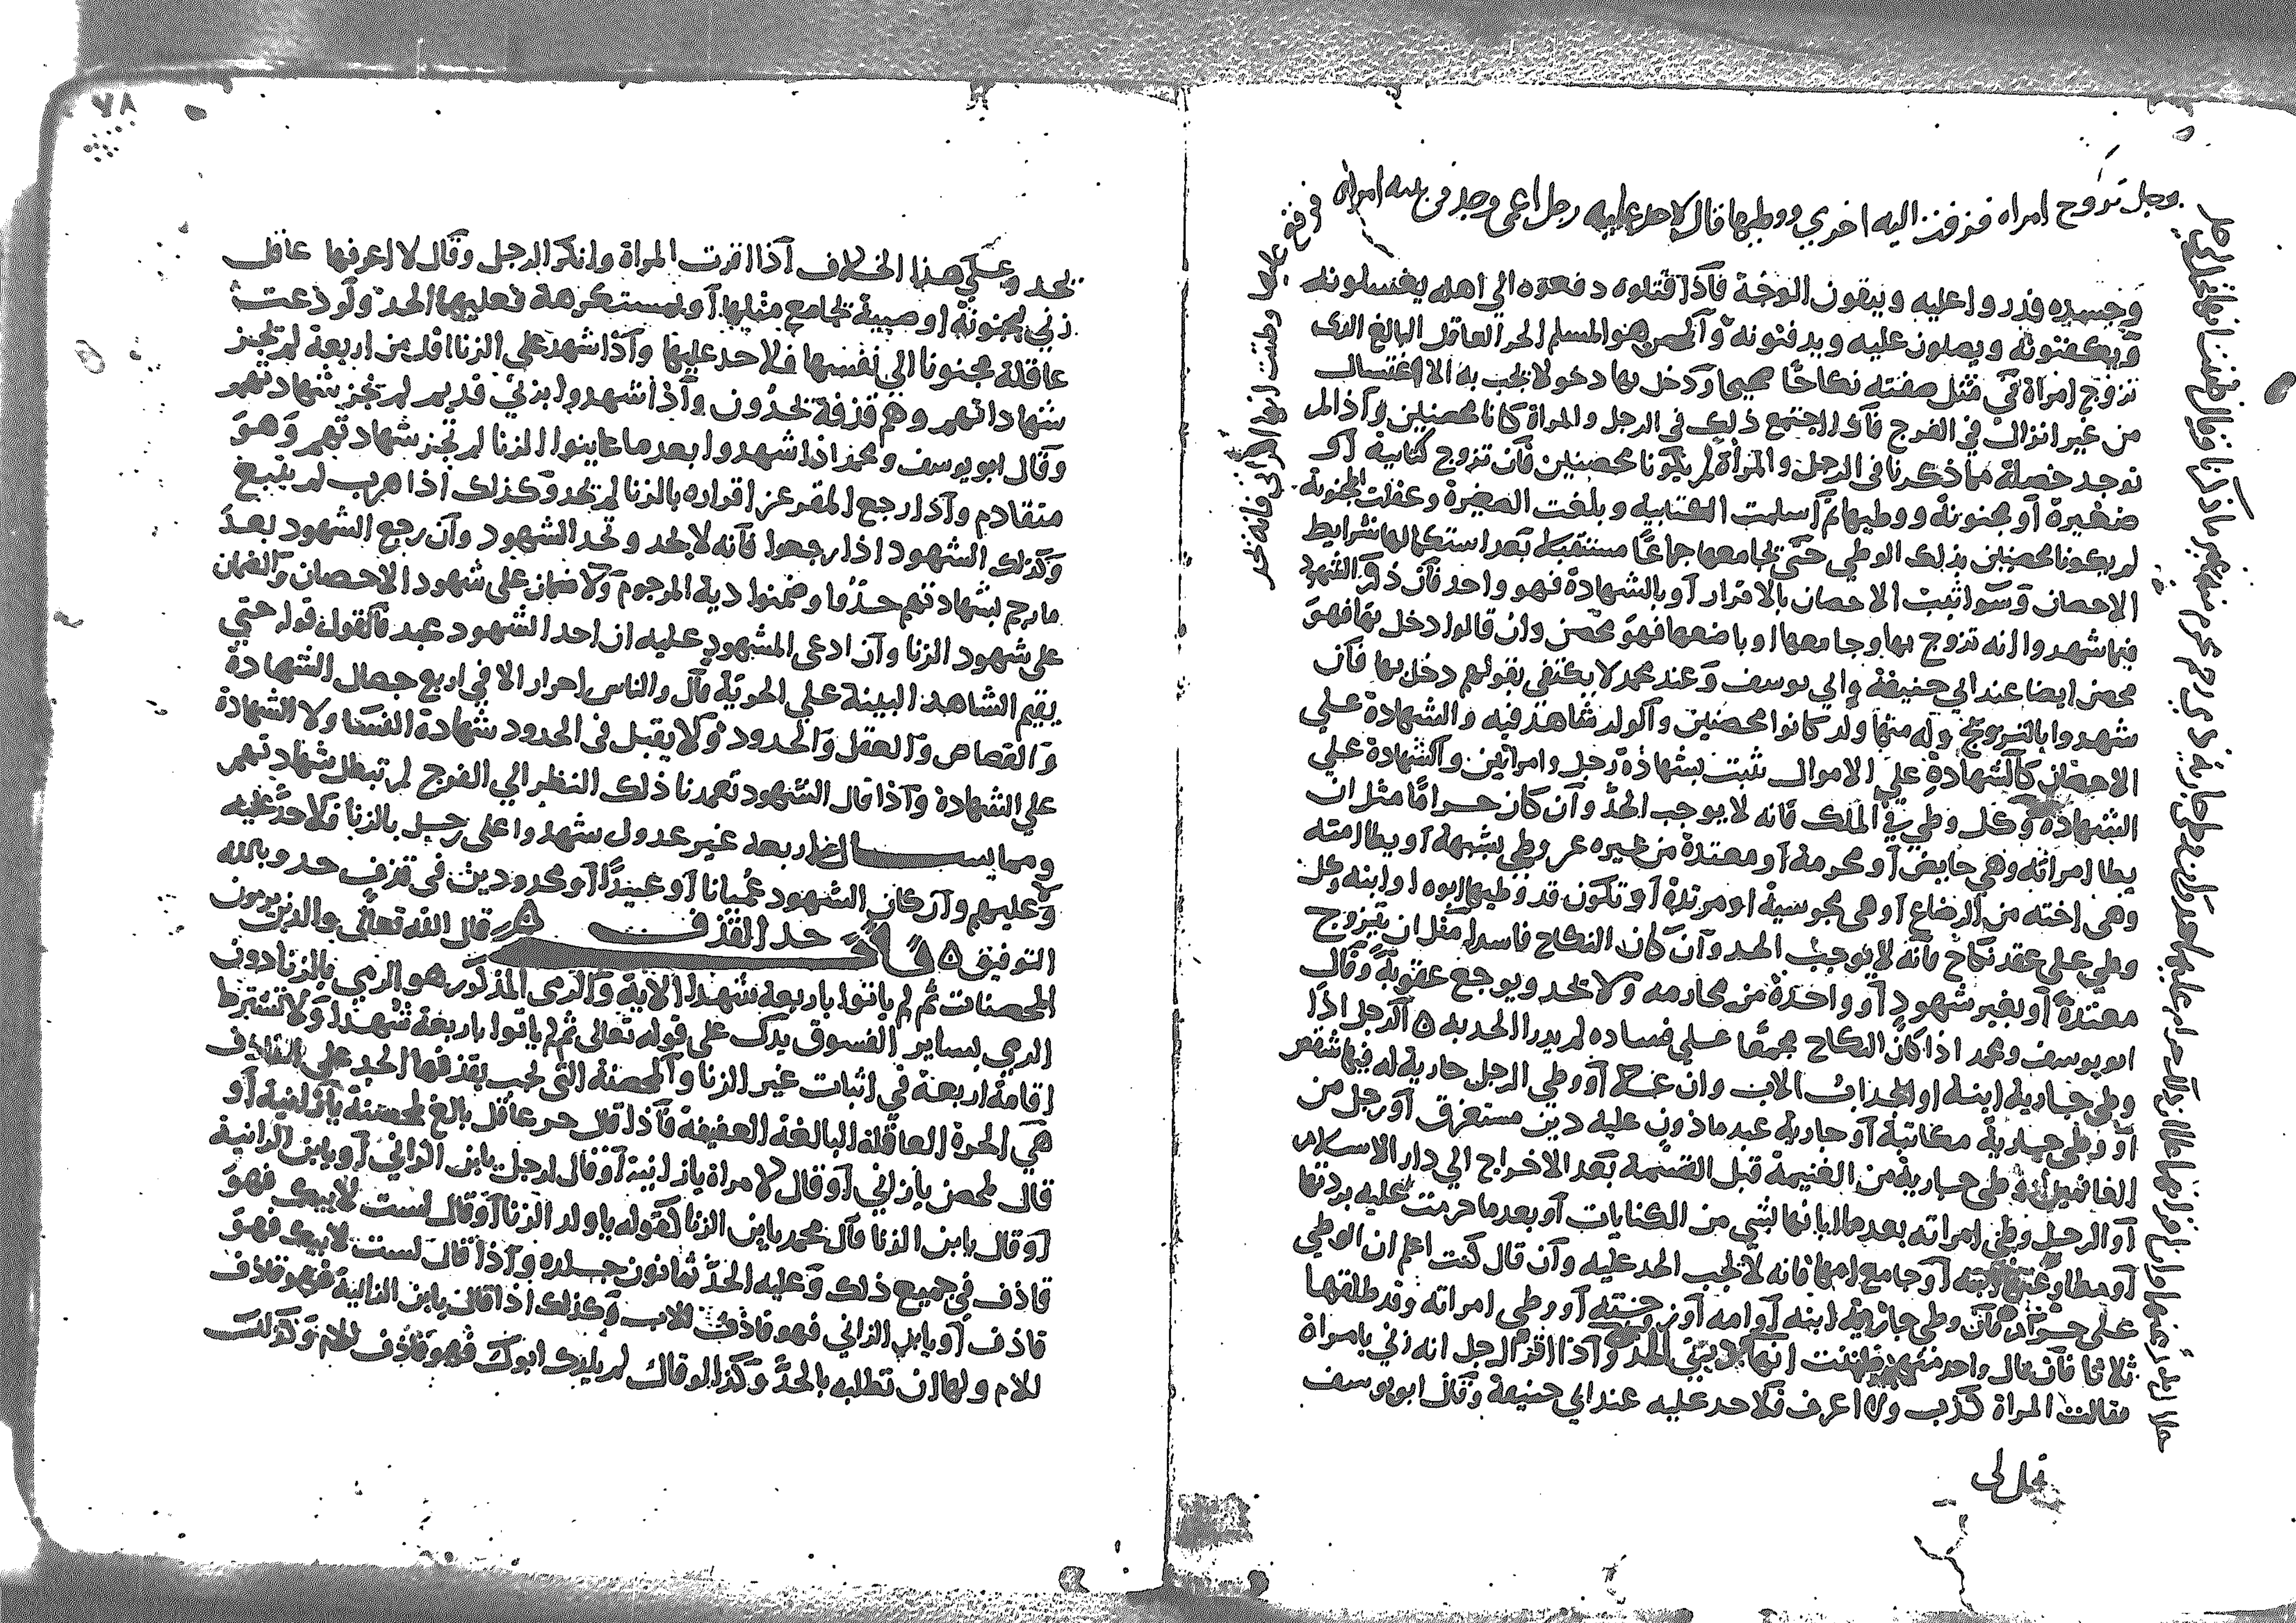 رجل تزوج امراه فزفت اليه اخري ووطيها قال لا حد عليه رجل اعمي وجد في بيته امراة
وجسده فذروا عليه ويبقون الوجة فاذا قتلوه دفعوه الي اهله يغسلونه
ويكفنونه ويصلون عليه ويدفنونه والمحصن هو المسلم الحر العاقل البالغ الذى
تزوج امراة في مثل صفته نكاحًا صحيحا ودخل بها دخولا يجب به الاغتسال
من غير انزال في الفرج فاذا اجتمع ذلك في الرجل والمراة كانا محصنين واذا لم
توجد خصلة مما ذكرنا في الرجل والمرأة لم يكونا محصنين فان تزوج كتابية او
صغيرة او مجنونة ووطيها ثم اسلمت الكتابيه وبلغت الصغيرة وعقلت المجنونة
لم يكونا محصنين بذلك الوطي حتى يجامعها جماعًا مستقبلا بعد استكمالها شرايط
الاحصان وسوا ثبت الاحصان بالاقرار او بالشهادة فهو واحد فان ذكر الشهود
فيما شهدوا انه تزوج بها وجامعها او باضعها فهو محصن وان قالوا دخل بها فهو
محصن ايضا عند ابي حنيفة وابي يوسف وعند محمد لا يكتفى بقولهم دخل بها فان
شهدوا بالتزويج وله منها ولد كانوا محصنين والولد شاهد فيه والشهادة علي
الاحصان كالشهادة علي الاموال ثبت بشهادة رجل وامراتين والشهادة علي
الشهادة وكل وطي في الملك فانه لا يوجب الحد وان كان حرامًا مثل ان
يطا امراته وهي حايض او محرمة او معتدة من غيره عن وطي بشبهة او يطا امته
وهى اخته من الرضاع او هى مجوسية او مرتدة او تكون قد وطيها ابوه او ابنه وكل
وطي على عقد نكاح فانه لا يوجب الحد وان كان النكاح فاسدا مثل ان يتزوج
معتدة او بغير شهود او واحدة من محارمه ولا يحد ويوجع عقوبة وقال
ابو يوسف ومحمد اذا كان النكاح مجمعًا علي فساده لم يدرا الحد به الرجل اذا
وطي جارية ابنه او الجداب الاب وان علا او وطي الرجل جارية له فيها شقص
او وطي جارية مكاتبة او جارية عبد ماذون عليه دين مستغرق او رجل من
الغانمين وطي جارية من الغنيمة قبل القسمة بعد الاخراج الي دار الاسلام
او الرجل وطي امراته بعد ما ابانها بشي من الكنايات او بعد ما حرمت عليه بردتها
او جامع امها فانه لا يجب الحد عليه وان قال كنت اعلم ان الوطي
على حرام فان وطي جارية ابنه او امه او زوجته او وطي امراته وقد طلقها
ثلاثا فان قال واحد منهم ظننت انها واذا اقر الرجل انه زني بامراة
فقالت المراة كذب ولا اعرف فلا حد عليه عند ابي حنيفة وقال ابو يوسف
٧٨
يحد وعلي هذا الخلاف اذا اقرت المراة وانكر الرجل وقال لا اعرفها عاقل
زني بمجنونة او صبية تجامع مثلها او مستكرهة فعليه الحد ولو دعت
عاقلة مجنونا الي نفسها فلا حد عليها واذا شهد علي الزنا اقل من اربعة لم تجز
شهاداتهم وهم قذفة يحدون واذا شهدوا بزني قديم لم تجز شهادتهم
وقال ابو يوسف ومحمد اذا شهدوا بعد ما عاينوا الزنا لم تجز شهادتهم وهو
متقادم واذا رجع المقر عن اقراره بالزنا لم يحد وكذلك اذا هرب لم يتبع
وكذلك الشهود اذا رجعوا فانه لا يحد وتحد الشهود وان رجع الشهود بعد
ما رجم بشهادتهم حدوا وضمنوا دية المرجوم ولا ضمان على شهود الاحصان والضمان
على شهود الزنا وان ادعى المشهود عليه ان احد الشهود عبد فالقول قوله حتي
يقيم الشاهد البينة علي الحرية قال والناس احرار الا في اربع خصال الشهادة
والقصاص والعقل والحدود ولا يقبل في الحدود شهادة النسا ولا الشهادة
علي الشهادة واذا قال الشهود تعمدنا ذلك النظر الي الفرج لم تبطل شهادتهم
ومما يسال اربعة غير عدول شهدوا على رجل بالزنا فلا حد عليه
ولا عليهم وان كان الشهود عميانا او عبيدًا او محدودين في قذف حد وبالله
التوفيق باب حد القذف قال الله تعالي والذين يرمون
المحصنات ثم لم ياتوا باربعة شهدا الاية والرمى المذكور هو الرمي بالزنا دون
الرمي بساير الفسوق يدل على قوله تعالى ثم لم ياتوا باربعة شهدا ولا تشترط
اقامة اربعة في اثبات غير الزنا والمحصنة التى يجب بقذفها الحد علي القاذف
هي الحرة العاقلة البالغة العفيفة فاذا قال حر عاقل بالغ لمحصنة يا زانية او
قال لمحصن يا زاني او قال لامراة يا زانية او قال لرجل يا ابن الزاني او يا ابن الزانية
او قال يا ابن الزنا قال محمد يا ابن الزنا كقوله يا ولد الزنا او قال لست لابيك فهو
قاذف في جميع ذلك وعليه الحد ثمانون جلده واذا قال لست لابيك فهو
قاذف او يا ابن الزاني فهو قاذف للاب وكذلك اذا قال يا ابن الزانية فهو قاذف
للام ولها ان تطلبه بالحد وكذا لو قال لم يلدك ابوك فهو قاذف للام وكذلك